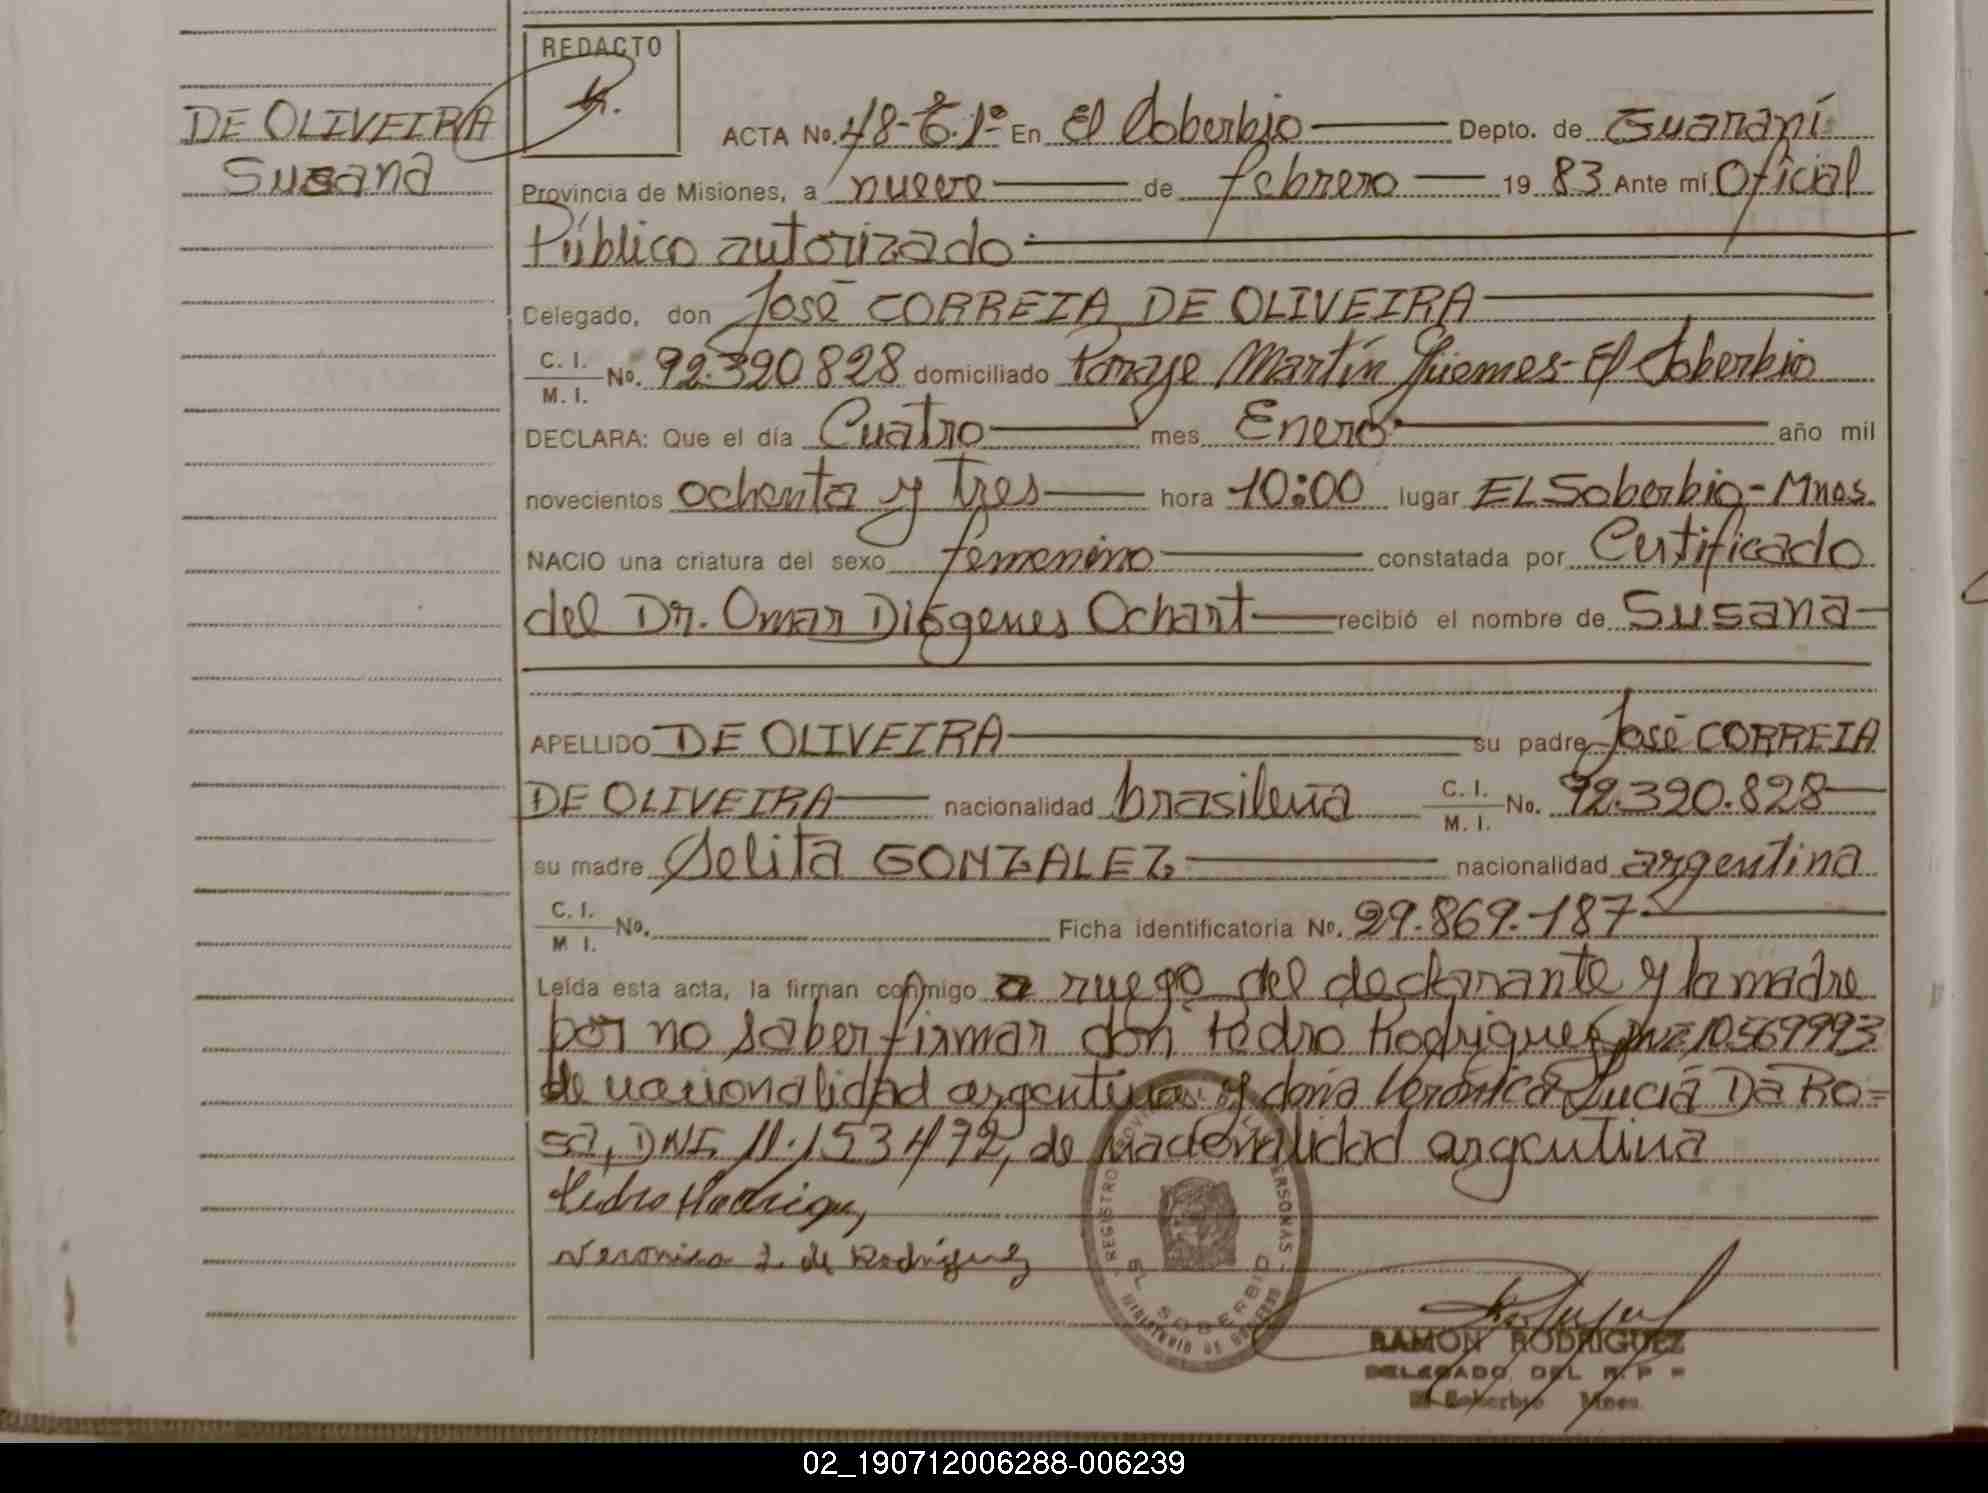 REDACTO
DE OLIVEIRA
Susana
ACTA No. 48-T.1º En El Soberbio Depto. de Guaraní
Provincia de Misiones, a nueve de febrero 19 83 Ante mí Oficial
Público autorizado
Delegado, don José CORREIA DE OLIVEIRA
C. I. M. I. No. 92.390.828 domiciliado Paraje Martín Güemes-El Soberbio
DECLARA: Que el día Cuatro mes Enero año mil
novecientos ochenta y tres hora 10:00 lugar EL Soberbio-Mnes.
NACIO una criatura del sexo femenino constatada por Certificado
del Dr. Omar Diógenes Ochart recibió el nombre de Susana
APELLIDO DE OLIVEIRA su padre José CORREIA
DE OLIVEIRA nacionalidad brasileña C. I. M. I. No. 92.390.828
su madre Selita GONZALEZ nacionalidad argentina
C. I. M I. No. Ficha identificatoria No. 29.869.187
Leída esta acta, la firman conmigo a ruego del declarante y la madre
por no saber firmar don Pedro Rodrigues 10569993
de nacionalidad argentina y doña Verónica Lucía Da Ro=
sa, DNI, 11.153472, de nacionalidad argentina
Pedro Rodrigu
Veronica L. de Rodriguez
REGISTRO PERSONAS
EL SOBERBIO
MINISTERIO DE GOBIERNO
RAMON RODRIGUEZ
DELEGADO DEL R. P. P
El Soberbio Mnes.
02_190712006288-006239